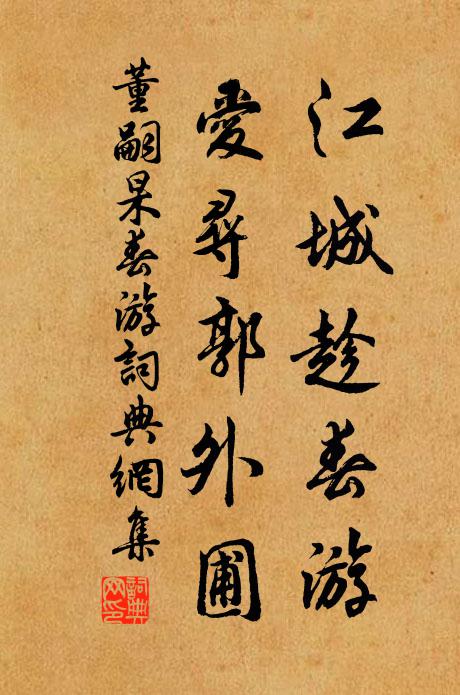 江城趁春游
愛尋郭外圃
董嗣杲春游詞典網集
詞典
网印